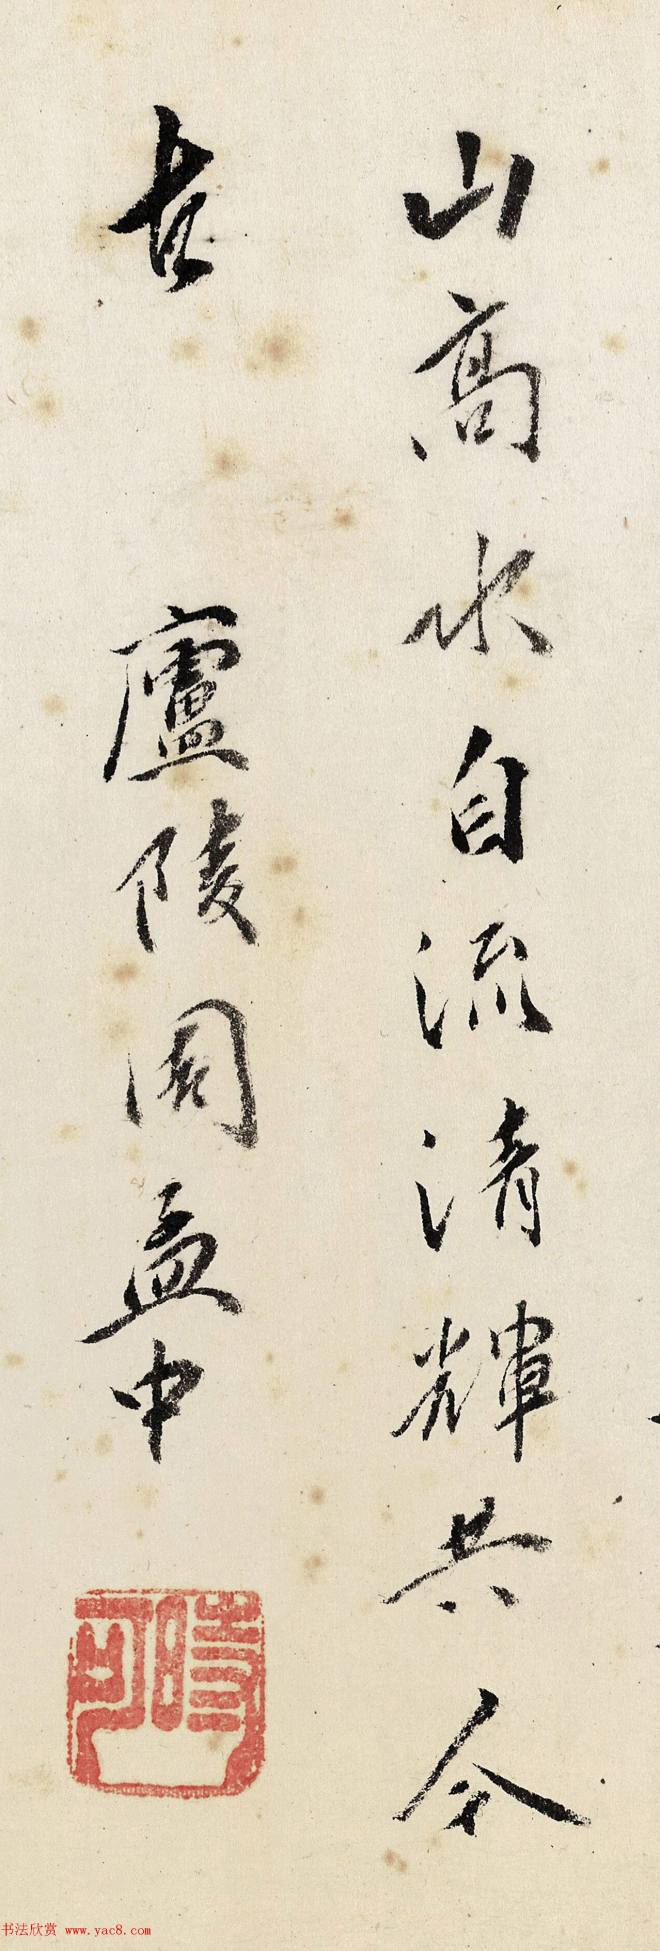 山高水自流清輝共今
古
廬陵周孟中
時可
书法欣赏 www.yac8.com